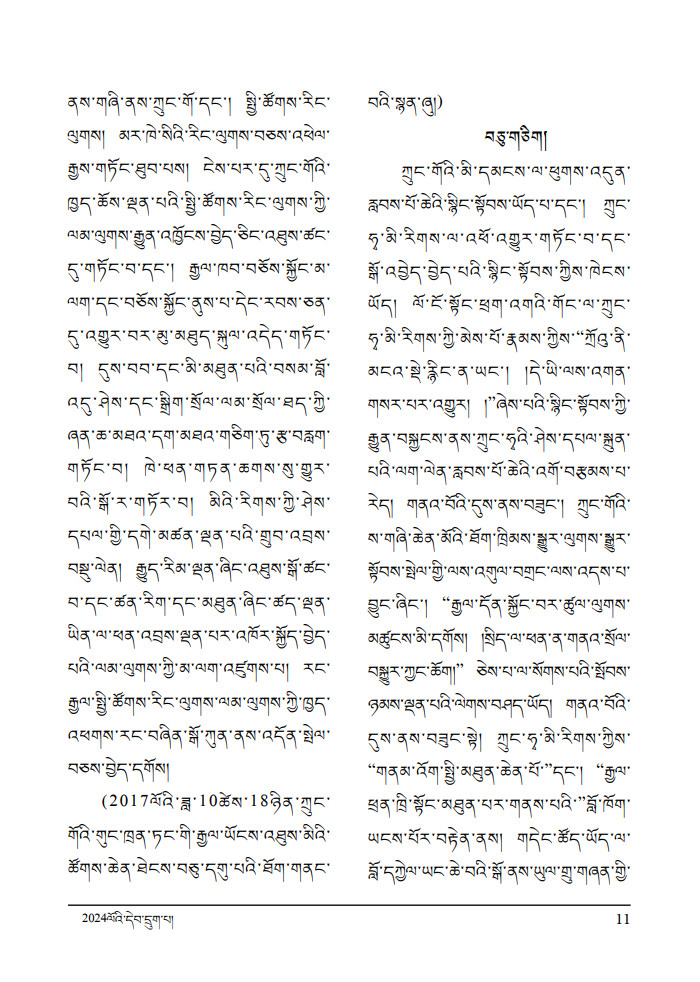 ནས་གཞི་ནས་ཀྲུང་གོ་དང་། སྤྱི་ཚོགས་རིང་
ལུགས། མར་ཁེ་སིའི་རིང་ལུགས་བཅས་འཕེལ་
རྒྱས་གཏོང་ཐུབ་པས། ངེས་པར་དུ་ཀྲུང་གོའི་
ཁྱད་ཆོས་ལྡན་པའི་སྤྱི་ཚོགས་རིང་ལུགས་ཀྱི་
ལམ་ལུགས་རྒྱུན་འཁྱོངས་བྱེད་ཅིང་འཐུས་ཚང་
དུ་གཏོང་བ་དང་། རྒྱལ་ཁབ་བཅོས་སྐྱོང་མ་
ལག་དང་བཅོས་སྐྱོང་ནུས་པ་དེང་རབས་ཅན་
དུ་འགྱུར་བར་མུ་མཐུད་སྐུལ་འདེད་གཏོང་
བ། དུས་བབ་དང་མི་མཐུན་པའི་བསམ་བློ་
འདུ་ཤེས་དང་སྒྲིག་སྲོལ་ལམ་སྲོལ་ཐད་ཀྱི་
ཞན་ཆ་མཐའ་དག་མཐའ་གཅིག་ཏུ་རྩ་བརླག་
གཏོང་བ། ཁེ་ཕན་གཏན་ཆགས་སུ་གྱུར་
བའི་སྒོ་ར་གཏོར་བ། མིའི་རིགས་ཀྱི་ཤེས་
དཔལ་གྱི་དགེ་མཚན་ལྡན་པའི་གྲུབ་འབྲས་
བསྡུ་ལེན། རྒྱུད་རིམ་ལྡན་ཞིང་འཐུས་སྒོ་ཚང་
བ་དང་ཚན་རིག་དང་མཐུན་ཞིང་ཚད་ལྡན་
ཡིན་ལ་ཕན་འབྲས་ལྡན་པར་འཁོར་སྐྱོད་བྱེད་
པའི་ལམ་ལུགས་ཀྱི་མ་ལག་འཛུགས་པ། རང་
རྒྱལ་སྤྱི་ཚོགས་རིང་ལུགས་ལམ་ལུགས་ཀྱི་ཁྱད་
འཕགས་རང་བཞིན་སྒོ་ཀུན་ནས་འདོན་སྤེལ་
བཅས་བྱེད་དགོས།
(2017ལོའི་ཟླ་10ཚེས་18ཉིན་ཀྲུང་
གོའི་གུང་ཁྲན་ཏང་གི་རྒྱལ་ཡོངས་འཐུས་མིའི་
ཚོགས་ཆེན་ཐེངས་བཅུ་དགུ་པའི་ཐོག་གནང་
བའི་སྙན་ཞུ།)
བཅུ་གཅིག
ཀྲུང་གོའི་མི་དམངས་ལ་ཕུགས་འདུན་
རླབས་པོ་ཆེའི་སྙིང་སྟོབས་ཡོད་པ་དང་། ཀྲུང་
ཧྭ་མི་རིགས་ལ་འཕོ་འགྱུར་གཏོང་བ་དང་
སྒོ་འབྱེད་བྱེད་པའི་སྙིང་སྟོབས་ཀྱིས་ཁེངས་
ཡོད། ལོ་ངོ་སྟོང་ཕྲག་འགའི་གོང་ལ་ཀྲུང་
ཧྭ་མི་རིགས་ཀྱི་མེས་པོ་རྣམས་ཀྱིས་“ཀྲོའུ་ནི་
མངའ་སྡེ་རྙིང་ན་ཡང་། །དེ་ཡི་ལས་འགན་
གསར་པར་འགྱུར། །”ཞེས་པའི་སྙིང་སྟོབས་ཀྱི་
རྒྱུན་བསྐྱངས་ནས་ཀྲུང་ཧྭའི་ཤེས་དཔལ་སྐྲུན་
པའི་ལག་ལེན་རླབས་པོ་ཆེའི་འགོ་བརྩམས་པ་
རེད། གནའ་བོའི་དུས་ནས་བཟུང་། ཀྲུང་གོའི་
ས་གཞི་ཆེན་མོའི་ཐོག་ཁྲིམས་སྒྱུར་ལུགས་སྒྱུར་
སྟོབས་སྤེལ་གྱི་ལས་འགུལ་བགྲང་ལས་འདས་པ་
བྱུང་ཞིང་། “རྒྱལ་དོན་སྐྱོང་བར་ཚུལ་ལུགས་
མཚུངས་མི་དགོས། །སྲིད་ལ་ཕན་ན་གནའ་སྲོལ་
བསྒྱུར་ཀྱང་ཆོག།” ཅེས་པ་ལ་སོགས་པའི་སྤོབས་
ཉམས་ལྡན་པའི་ལེགས་བཤད་ཡོད། གནའ་བོའི་
དུས་ནས་བཟུང་སྟེ། ཀྲུང་ཧྭ་མི་རིགས་ཀྱིས་
“གནམ་འོག་སྤྱི་མཐུན་ཆེན་པོ་”དང་། “རྒྱལ་
ཕྲན་ཁྲི་སྟོང་མཐུན་པར་གནས་པའི་”བློ་ཁོག་
ཡངས་པོར་བརྟེན་ནས། གདེང་ཚོད་ཡོད་ལ་
བློ་དཀྱེལ་ཡང་ཆེ་བའི་སྒོ་ནས་ཡུལ་གྲུ་གཞན་གྱི་
2024ལོའི་དེབ་དྲུག་པ། 11